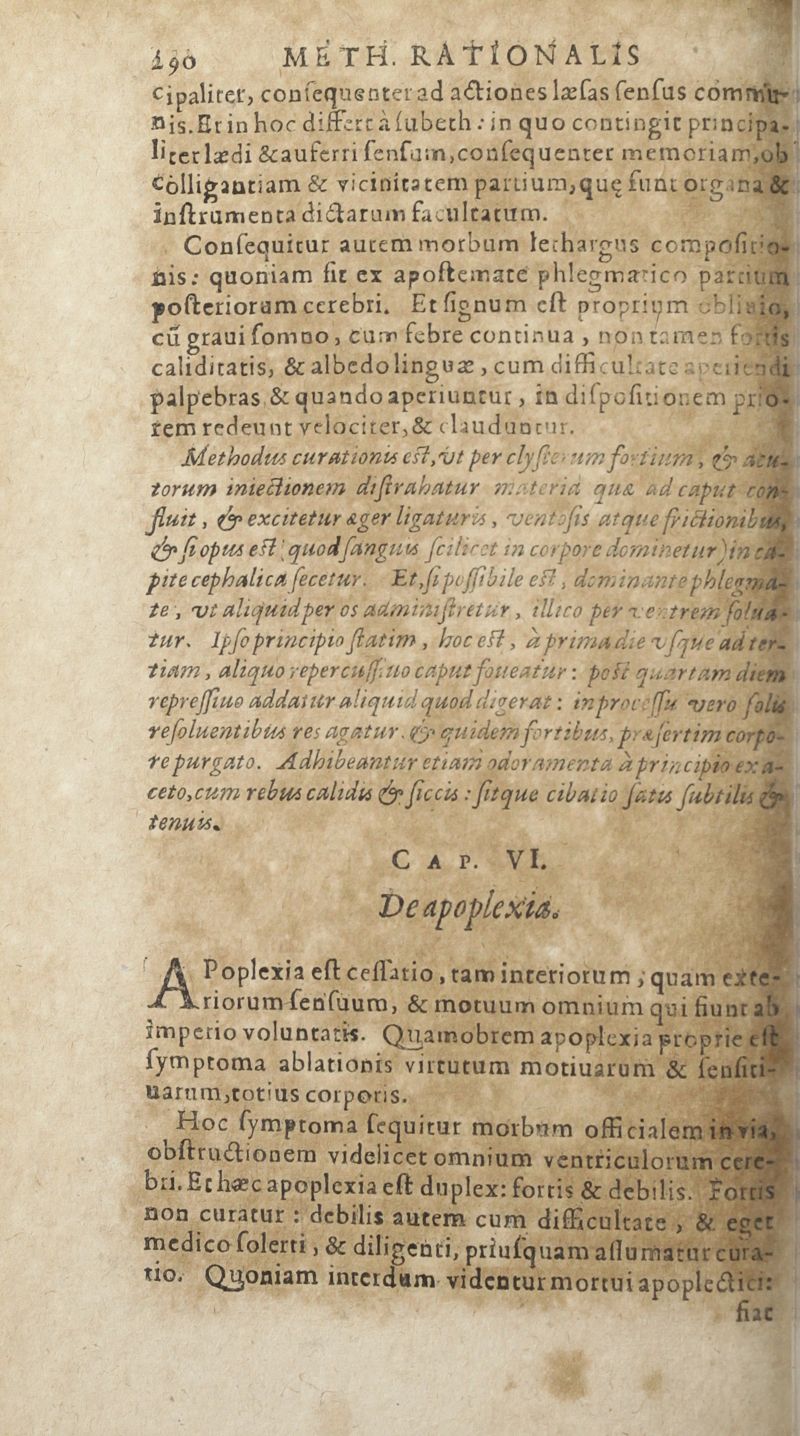 190 METH. RATIONALIS
cipaliter, consequenter ad actiones læsas sensus commu-
nis. Et in hoc differt à subeth: in quo contingit principa-
liter lædi & auferri sensum, consequenter memoriam, ob
colligantiam & vicinitatem partium, quę sunt organa &
instrumenta dictarum facultatum.
Consequitur autem morbum lethargus compositio-
nis: quoniam fit ex apostemate phlegmatico partium
posteriorum cerebri. Et signum est proprium oblivio,
cū graui somno, cum febre continua, non tamen fortis
caliditatis, & albedo linguæ, cum difficultate aperiendi
palpebras & quando aperiuntur, in dispositionem prio-
rem redeunt velociter, & clauduntur.
Methodus curationis est, vt per clysterium fortium, & acu-
torum iniectionem distrahatur materia quæ ad caput con-
fluit, & excitetur æger ligaturis, ventosis atque frictionibus,
& si opus est quod sanguis scilicet in corpore dominetur) in ca-
pite cephalica secetur. Et, si possibile est, dominante phlegma-
te, vt aliquid per os administretur, illico per ventrem solua-
tur. Ipso principio statim, hoc est, à prima die vsque ad ter-
tiam, aliquo repercussiuo caput foueatur: post quartam diem
repressiuo addatur aliquid quod digerat: in processu vero solis
resoluentibus res agatur. & quidem fortibus, præsertim corpo-
re purgato. Adhibeantur etiam odoramenta à principio ex a-
ceto, cum rebus calidis & siccis: sitque cibatio satis subtilis &
tenuis.
CAP. VI.
De apoplexia.
APoplexia est cessatio, tam interiorum, quam exte-
riorum sensuum, & motuum omnium qui fiunt ab
imperio voluntatis. Quamobrem apoplexia proprie est
symptoma ablationis virtutum motiuarum & sensiti-
uarum, totius corporis.
Hoc symptoma sequitur morbum officialem in via,
obstructionem videlicet omnium ventriculorum cere-
bri. Et hæc apoplexia est duplex: fortis & debilis. Fortis
non curatur: debilis autem cum difficultate, & eget
medico solerti, & diligenti, priusquam assumatur cura-
tio. Quoniam interdum videntur mortui apoplectici:
fiat